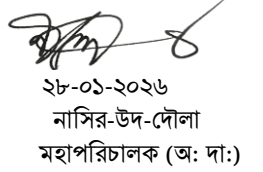 ২৮-০১-২০২৬
নাসির-উদ-দৌলা
মহাপরিচালক (অ: দা:)